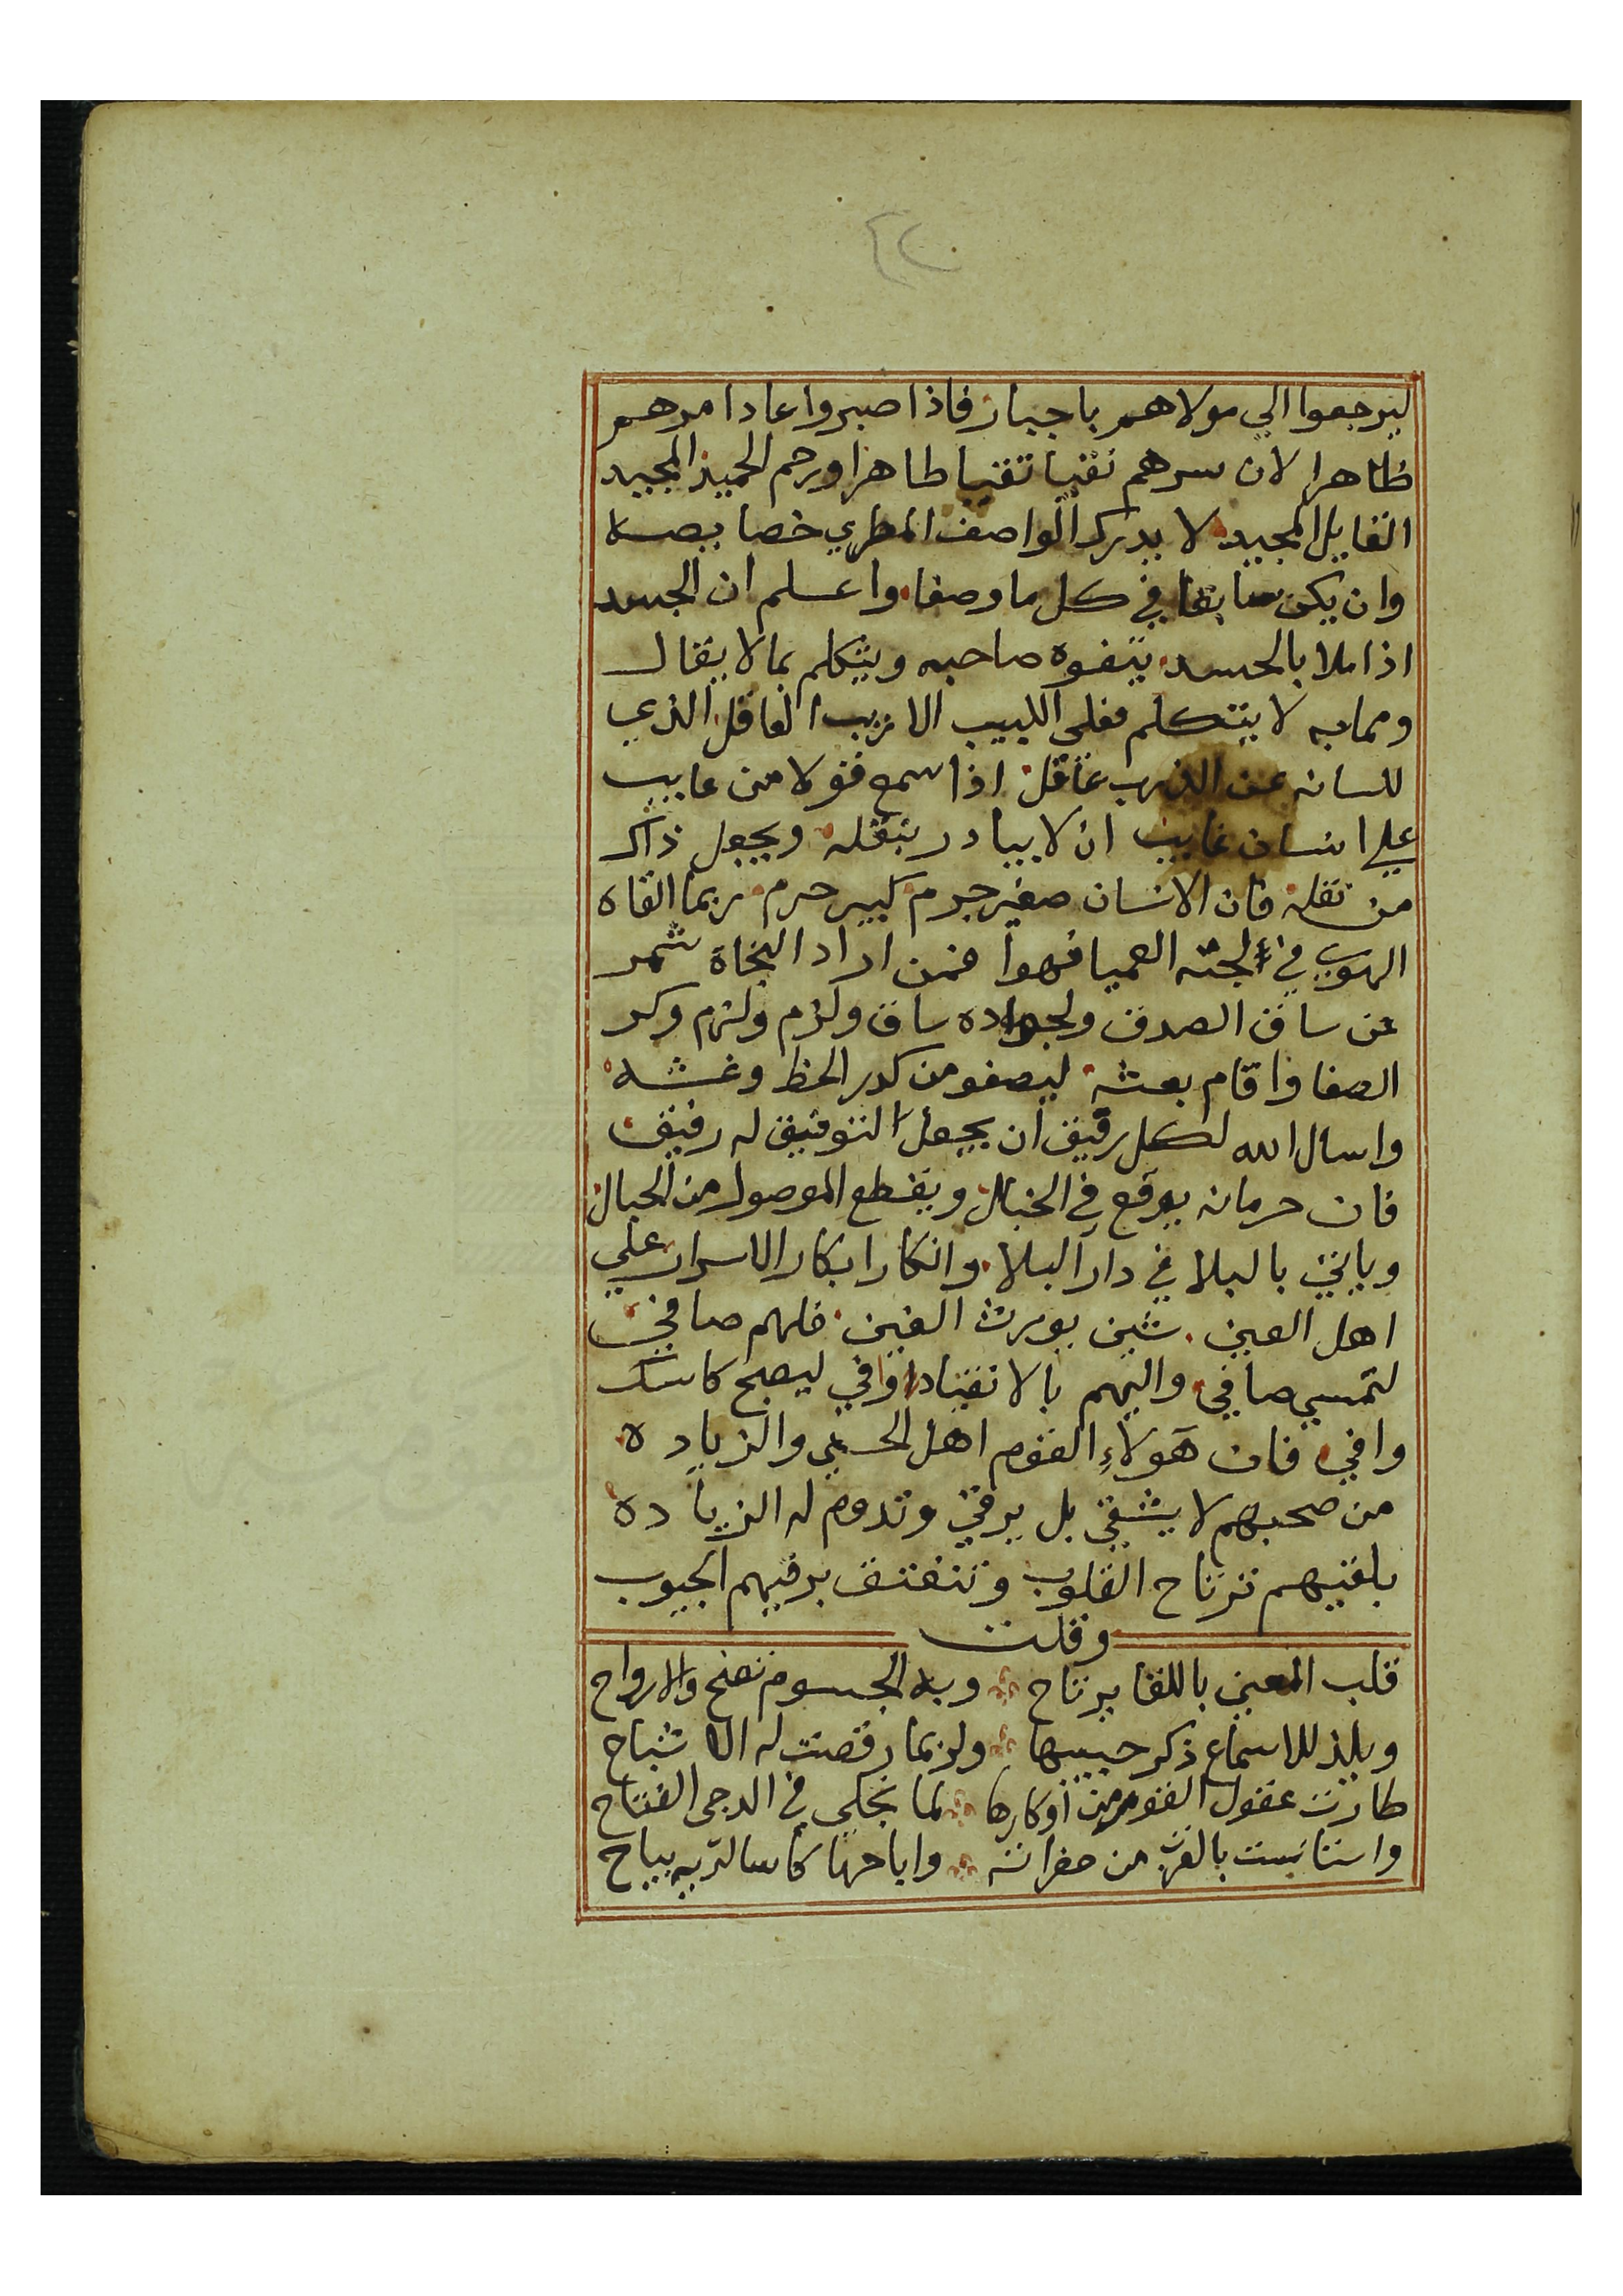 ٤٢
ليرجعوا الي مولاهم باجبار فاذا صبروا عادا مرهم
ظاهرا لان سرهم نقيا تقيا طاهرا ورحم الحميد المجيد
القايل المجيد لا يدرك الواصف المطري خصايصه
وان يكن سابقا في كل ما وصفا واعلم ان الجسد
اذا ملا بالحسد يتفوه صاحبه ويتكلم بما لا يقال
ومما به لا يتكلم فعلى اللبيب الاريب العاقل الذي
للسانه عن الذرب عاقل اذا سمع قولا من عايب
علي انسان غايب ان لا يبادر بنقله ويجعل ذاك
من نقله فان الانسان صغير جرم كبير جرم ربما القاه
الهوي في لجته العميا فهوا فمن اراد النجاة شمر
عن ساق الصدق ولجواده ساق ولزم وكر
الصفا واقام بعشه ليصفو من كدر الحظ وغشه
واسال الله لكل رقيق ان يجعل التوفيق له رفيق
فان حرمانه يوقع في الخبال ويقطع الموصول من الحبال
وياتي بالبلا في دار البلا وانكار ابكار الاسرار علي
اهل العين شين يورث الغين فلهم صافي
لتمسي صافي واليهم بالانقياد وافي ليصبح كاسك
وافي فان هولاءِ القوم اهل الحسني والزياده
من صحبهم لا يشقي بل يرقي وتدوم له الزياده
بلقيهم ترتاح القلوب وتنفتق برقيهم الجيوب
وقلت
قلب المعنى باللقا يرتاح وبه الجسوم تصح والارواح
ويلذ للاسماع ذكر حبيبها ولربما رقصت له الاشباح
طارت عقول القوم من اوكارها لما تجلى في الدجى الفتاح
واستانست بالقرب من حضراته واباحها كاسا لديه يباح